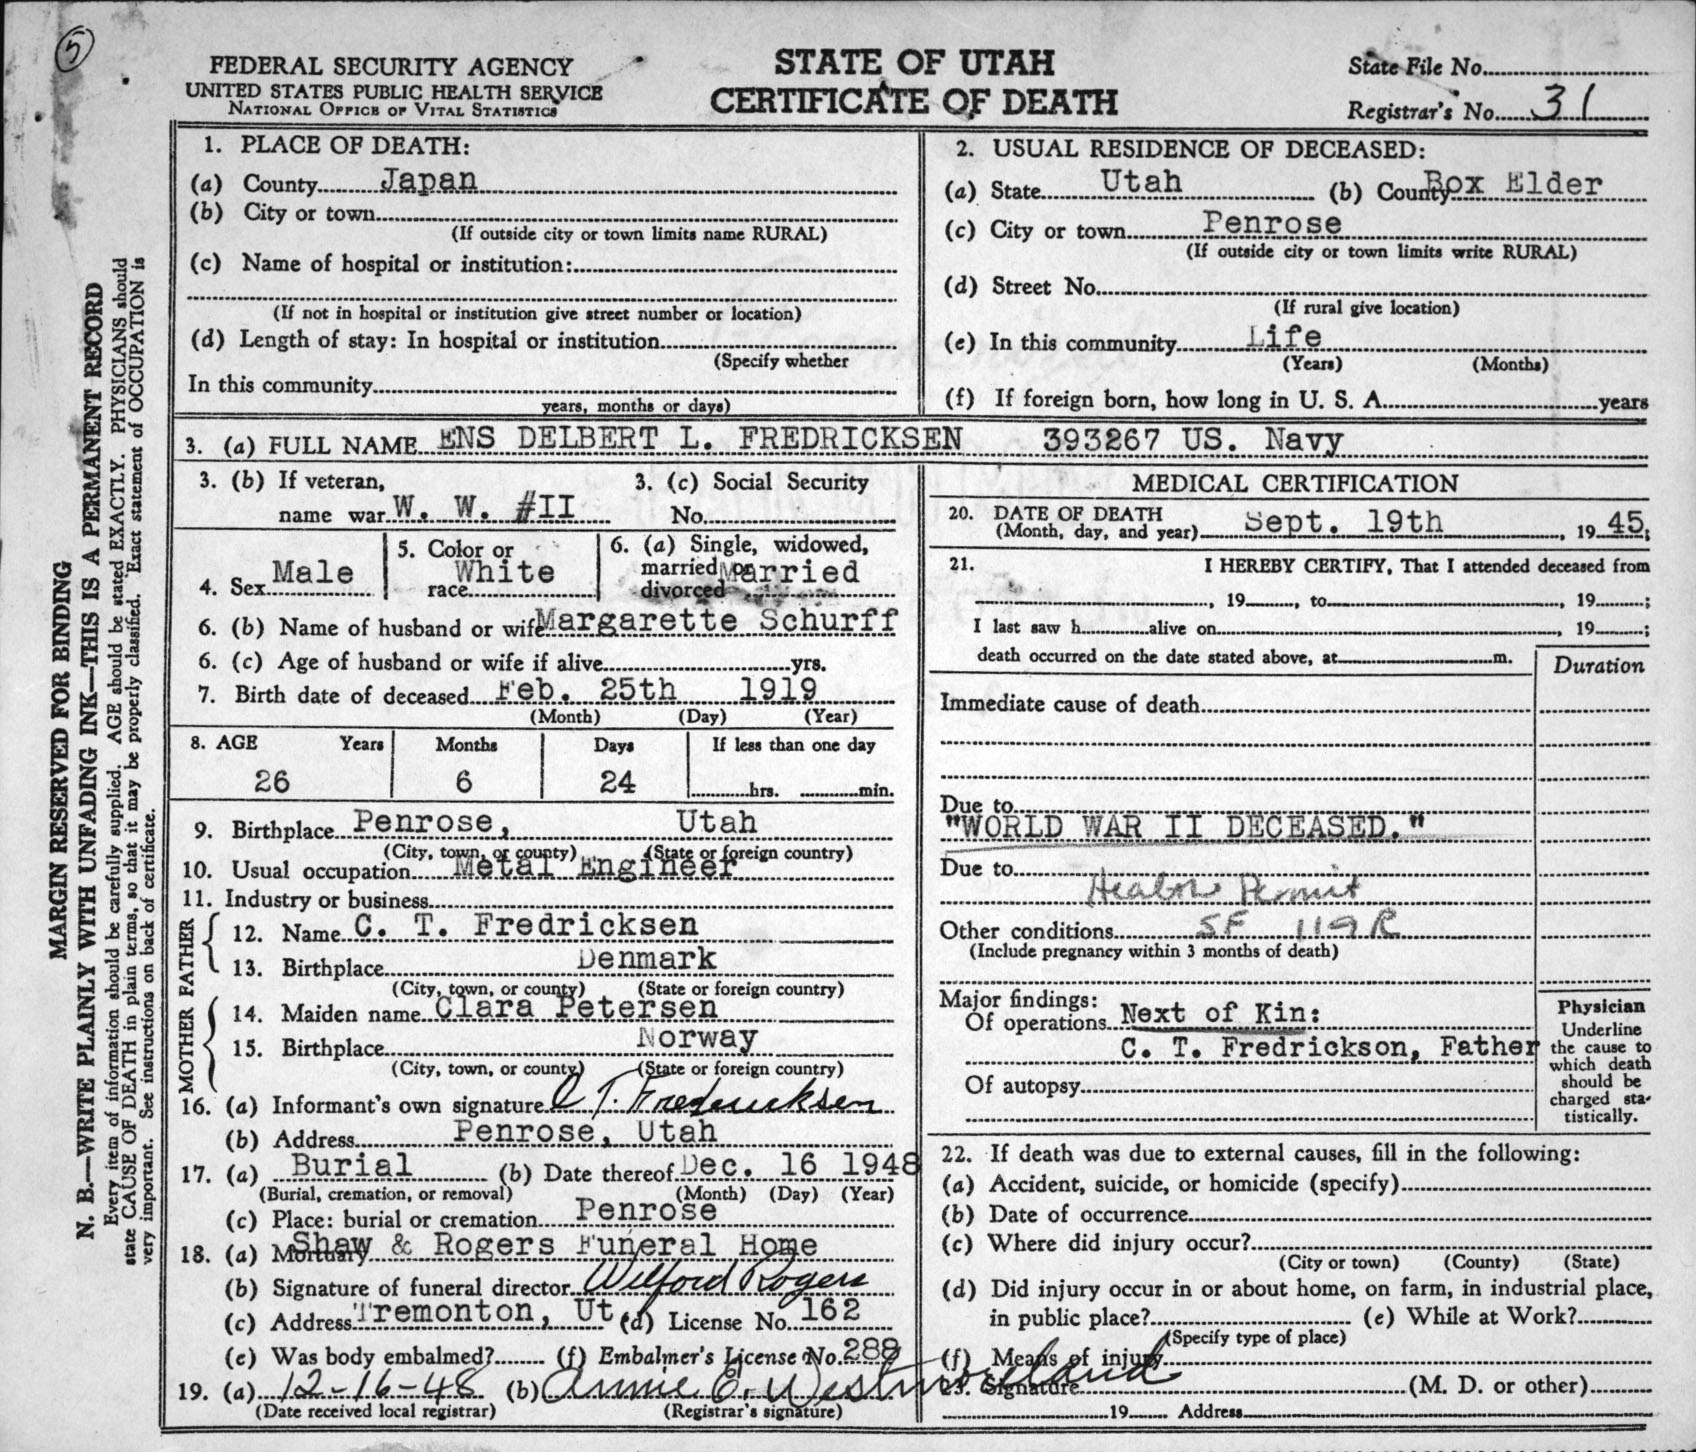 5
FEDERAL SECURITY AGENCY
UNITED STATES PUBLIC HEALTH SERVICE
NATIONAL OFFICE OF VITAL STATISTICS
STATE OF UTAH
CERTIFICATE OF DEATH
State File No.
Registrar's No. 31
MARGIN RESERVED FOR BINDING
N. B.—WRITE PLAINLY WITH UNFADING INK—THIS IS A PERMANENT RECORD
Every item of information should be carefully supplied. AGE should be stated EXACTLY. PHYSICIANS should
state CAUSE OF DEATH in plain terms, so that it may be properly classified. Exact statement of OCCUPATION is
very important. See instructions on back of certificate.
1. PLACE OF DEATH:
(a) County Japan
(b) City or town
(If outside city or town limits name RURAL)
(c) Name of hospital or institution:
(If not in hospital or institution give street number or location)
(d) Length of stay: In hospital or institution
(Specify whether
In this community
years, months or days)
2. USUAL RESIDENCE OF DECEASED:
(a) State Utah (b) County Box Elder
(c) City or town Penrose
(If outside city or town limits write RURAL)
(d) Street No.
(If rural give location)
(e) In this community Life
(Years) (Months)
(f) If foreign born, how long in U. S. A. years
3. (a) FULL NAME ENS DELBERT L. FREDRICKSEN 393267 US. Navy
3. (b) If veteran,
name war W. W. #II
3. (c) Social Security
No.
4. Sex Male
5. Color or
race White
6. (a) Single, widowed,
married or
divorced Married
6. (b) Name of husband or wife Margarette Schurff
6. (c) Age of husband or wife if alive yrs.
7. Birth date of deceased Feb. 25th 1919
(Month) (Day) (Year)
8. AGE Years Months Days If less than one day
26 6 24 hrs. min.
9. Birthplace Penrose, Utah
(City, town, or county) (State or foreign country)
10. Usual occupation Metal Engineer
11. Industry or business
FATHER
12. Name C. T. Fredricksen
13. Birthplace Denmark
(City, town, or county) (State or foreign country)
MOTHER
14. Maiden name Clara Petersen
15. Birthplace Norway
(City, town, or county) (State or foreign country)
16. (a) Informant's own signature C T. Fredericksen
(b) Address Penrose, Utah
17. (a) Burial (b) Date thereof Dec. 16 1948
(Burial, cremation, or removal) (Month) (Day) (Year)
(c) Place: burial or cremation Penrose
18. (a) Mortuary Shaw & Rogers Funeral Home
(b) Signature of funeral director Wilford Rogers
(c) Address Tremonton, Ut (d) License No. 162
(e) Was body embalmed? (f) Embalmer's License No. 288
19. (a) 12-16-48 (b) Annie E. Westmoreland
(Date received local registrar) (Registrar's signature)
MEDICAL CERTIFICATION
20. DATE OF DEATH
(Month, day, and year) Sept. 19th, 19 45;
21. I HEREBY CERTIFY, That I attended deceased from
, 19 , to , 19 ;
I last saw h alive on , 19 ;
death occurred on the date stated above, at m.
Duration
Immediate cause of death
Due to
"WORLD WAR II DECEASED."
Due to
Permit
Other conditions SF 119 R
(Include pregnancy within 3 months of death)
Major findings:
Of operations Next of Kin:
C. T. Fredrickson, Father
Of autopsy
Physician
Underline
the cause to
which death
should be
charged sta-
tistically.
22. If death was due to external causes, fill in the following:
(a) Accident, suicide, or homicide (specify)
(b) Date of occurrence
(c) Where did injury occur?
(City or town) (County) (State)
(d) Did injury occur in or about home, on farm, in industrial place,
in public place? (e) While at Work?
(Specify type of place)
(f) Means of injury
23. Signature (M. D. or other)
19 Address